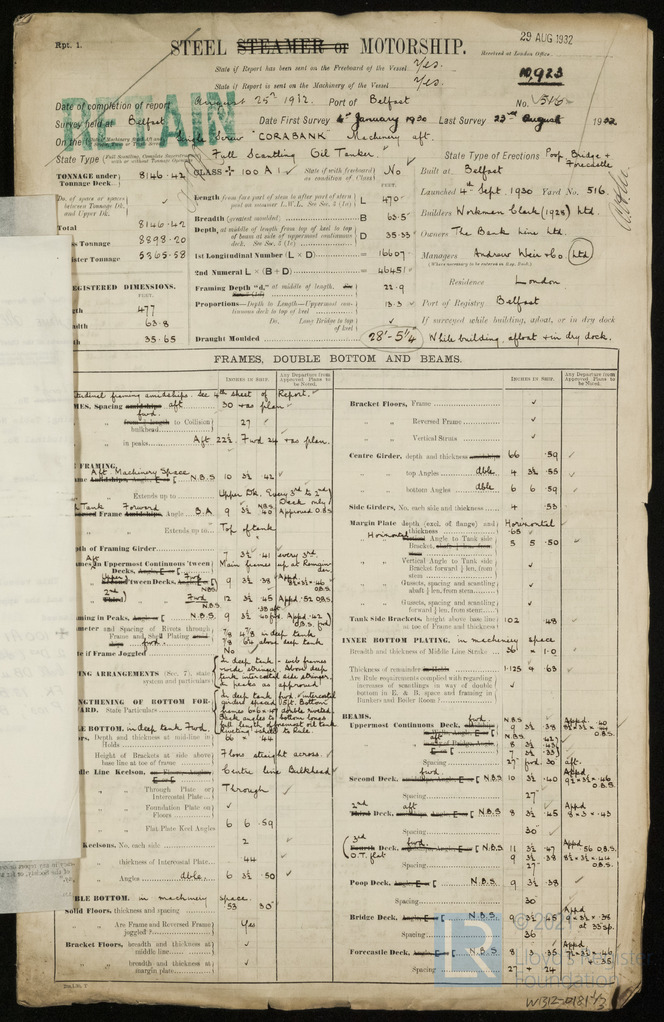 Rpt. 1.
29 AUG 1932
STEEL STEAMER or MOTORSHIP.
Received at London Office
State if Report has been sent on the Freeboard of the Vessel Yes.
State if Report is sent on the Machinery of the Vessel Yes.
10,923
RETAIN
Date of completion of report August 25th 1932. Port of Belfast No. 516
Survey held at Belfast Date First Survey 6th January 1930 Last Survey 23rd August 1932
On the Single Screw "CORABANK" Machinery aft.
State Type Full Scantling Oil Tanker. State Type of Erections Poop Bridge + Forecastle
TONNAGE under Tonnage Deck 8146.42
CLASS + 100 A1 State if with freeboard as condition of Class No
Built at Belfast
Do. of space or spaces between Tonnage Dk. and Upper Dk.
Launched 4th Sept. 1930 Yard No. 516.
Total 8146.42
Tonnage 8898.20
5365.58
Length from fore part of stem to after part of stern post on summer L.W.L. See Sec. 2 (1a) L 470
Breadth (greatest moulded) B 63.5
Builders Workman Clark (1928) Ltd.
Depth, at middle of length from top of keel to top of beam at side of uppermost continuous deck. See Sec. 2 (1c) D 35.33
Owners The Bank Line Ltd.
1st Longitudinal Number (L × D) = 16607
Managers Andrew Weir & Co Ltd
(Where necessary to be entered in Reg. Book)
2nd Numeral L × (B + D) = 46451
Residence London
REGISTERED DIMENSIONS.
FEET.
477
63.8
35.65
Framing Depth "d," at middle of length. 22.9
Proportions—Depth to Length—Uppermost continuous deck to top of keel 13.3
Port of Registry Belfast
Do. Long Bridge to top of keel
If surveyed while building, afloat, or in dry dock
Draught Moulded 28'-5¼ While building, afloat + in dry dock.
FRAMES, DOUBLE BOTTOM AND BEAMS.
INCHES IN SHIP.
Any Departure from Approved Plans to be Noted.
INCHES IN SHIP.
Any Departure from Approved Plans to be Noted.
Longitudinal framing amidships. See 4th sheet of Report.
Spacing amidships aft 30 as plan
fwd. length to Collision bulkhead 27
in peaks Aft 22½. Fwd 24 as plan.
FRAMING
Aft. Machinery Space
N.B.S 10 3½ 42
Extends up to Upper Dk. Every 3rd to 2nd Deck only
Tank Forward
Frame Amidships, Angle B.A. 9 3½ 40 Approved O.B.S.
Extends up to Top of tank
Depth of Framing Girder
7 3½ .41 every 3rd
Uppermost Continuous 'tween Decks, Main frames up at Remainder
9 3½ .38
Fwd N.B.S. 12 3½ .45 Appd .52 O.B.S.
Framing in Peaks, N.B.S. 9 3½
Diameter and Spacing of Rivets through Frame and Shell Plating 7/8 4 7/8 in deep tank
fwd. 7/8 6 1/8 above deep tank
State if Frame Joggled No
FRAMING ARRANGEMENTS (Sec. 7), state system and particulars In deep tank - web frames + side stringer. Above deep tank intercostal side stringer. In peaks as approved
STRENGTHENING OF BOTTOM FORWARD. State Particulars
DOUBLE BOTTOM, in deep tank Fwd.
Depth and thickness at mid-line in Holds 66 × 44
Height of Brackets at side above base line at toe of frame Floors straight across
Middle Line Keelson, Centre line Bulkhead
Through Plate or Intercostal Plate Through
Foundation Plate on Floors
Flat Plate Keel Angles 6 6 .59
Keelsons, No. each side 2
thickness of Intercostal Plate .44
Angles dble. 6 3½ .50
DOUBLE BOTTOM. in machinery space.
Solid Floors, thickness and spacing .53 30"
Are Frame and Reversed Frame joggled? Yes
Bracket Floors, breadth and thickness at middle line
breadth and thickness at margin plate
Bracket Floors, Frame
Reversed Frame
Vertical Struts
Centre Girder, depth and thickness amidships 66 .59
top Angles dble 4 3½ .55
bottom Angles dble 6 6 .59
Side Girders, No. each side and thickness 4 .53
Margin Plate depth (excl. of flange) and thickness Horizontal .65
Horizontal Angle to Tank side Bracket, 5 5 .50
Vertical Angle to Tank side Bracket forward ¼ len. from stem
Gussets, spacing and scantling abaft ¼ len. from stem
Gussets, spacing and scantling forward ¼ len. from stem
Tank Side Brackets, height above base line at toe of Frame and thickness 102 .48
INNER BOTTOM PLATING, in machinery space
Breadth and thickness of Middle Line Strake 36 × 1.0
Thickness of remainder 1.125 4 .63
Are Rule requirements complied with regarding increases of scantlings in way of double bottom in E. & B. space and framing in Bunkers and Boiler Room?
BEAMS.
Uppermost Continuous Deck, fwd. N.B.S. 9 3½ .38 Appd .40 O.B.S.
aft N.B.S.
Spacing 27 fwd. 30 aft.
Second Deck, fwd. N.B.S. 10 3½ .40 Appd 9½ × 3½ × .46 O.B.S.
Spacing 27
2nd Third Deck, aft N.B.S. 8 3½ .45 Appd 8 × 3 × .43
Spacing 30
3rd Fourth Deck, fwd. N.B.S. 11 3½ .47 Appd .56 O.B.S.
O.T. flat 9 3½ .38
Spacing 27
Poop Deck, N.B.S. 9 3½ .38
Spacing 30
Bridge Deck, N.B.S. 9 3½ .45 Appd 9 × 3½ × .38 at 33 sp.
Spacing 36
Forecastle Deck, N.B.S. 8 3½ .35
Spacing 27 + 24
© 2021
Lloyd's Register
Foundation
W1312-0181 1/3